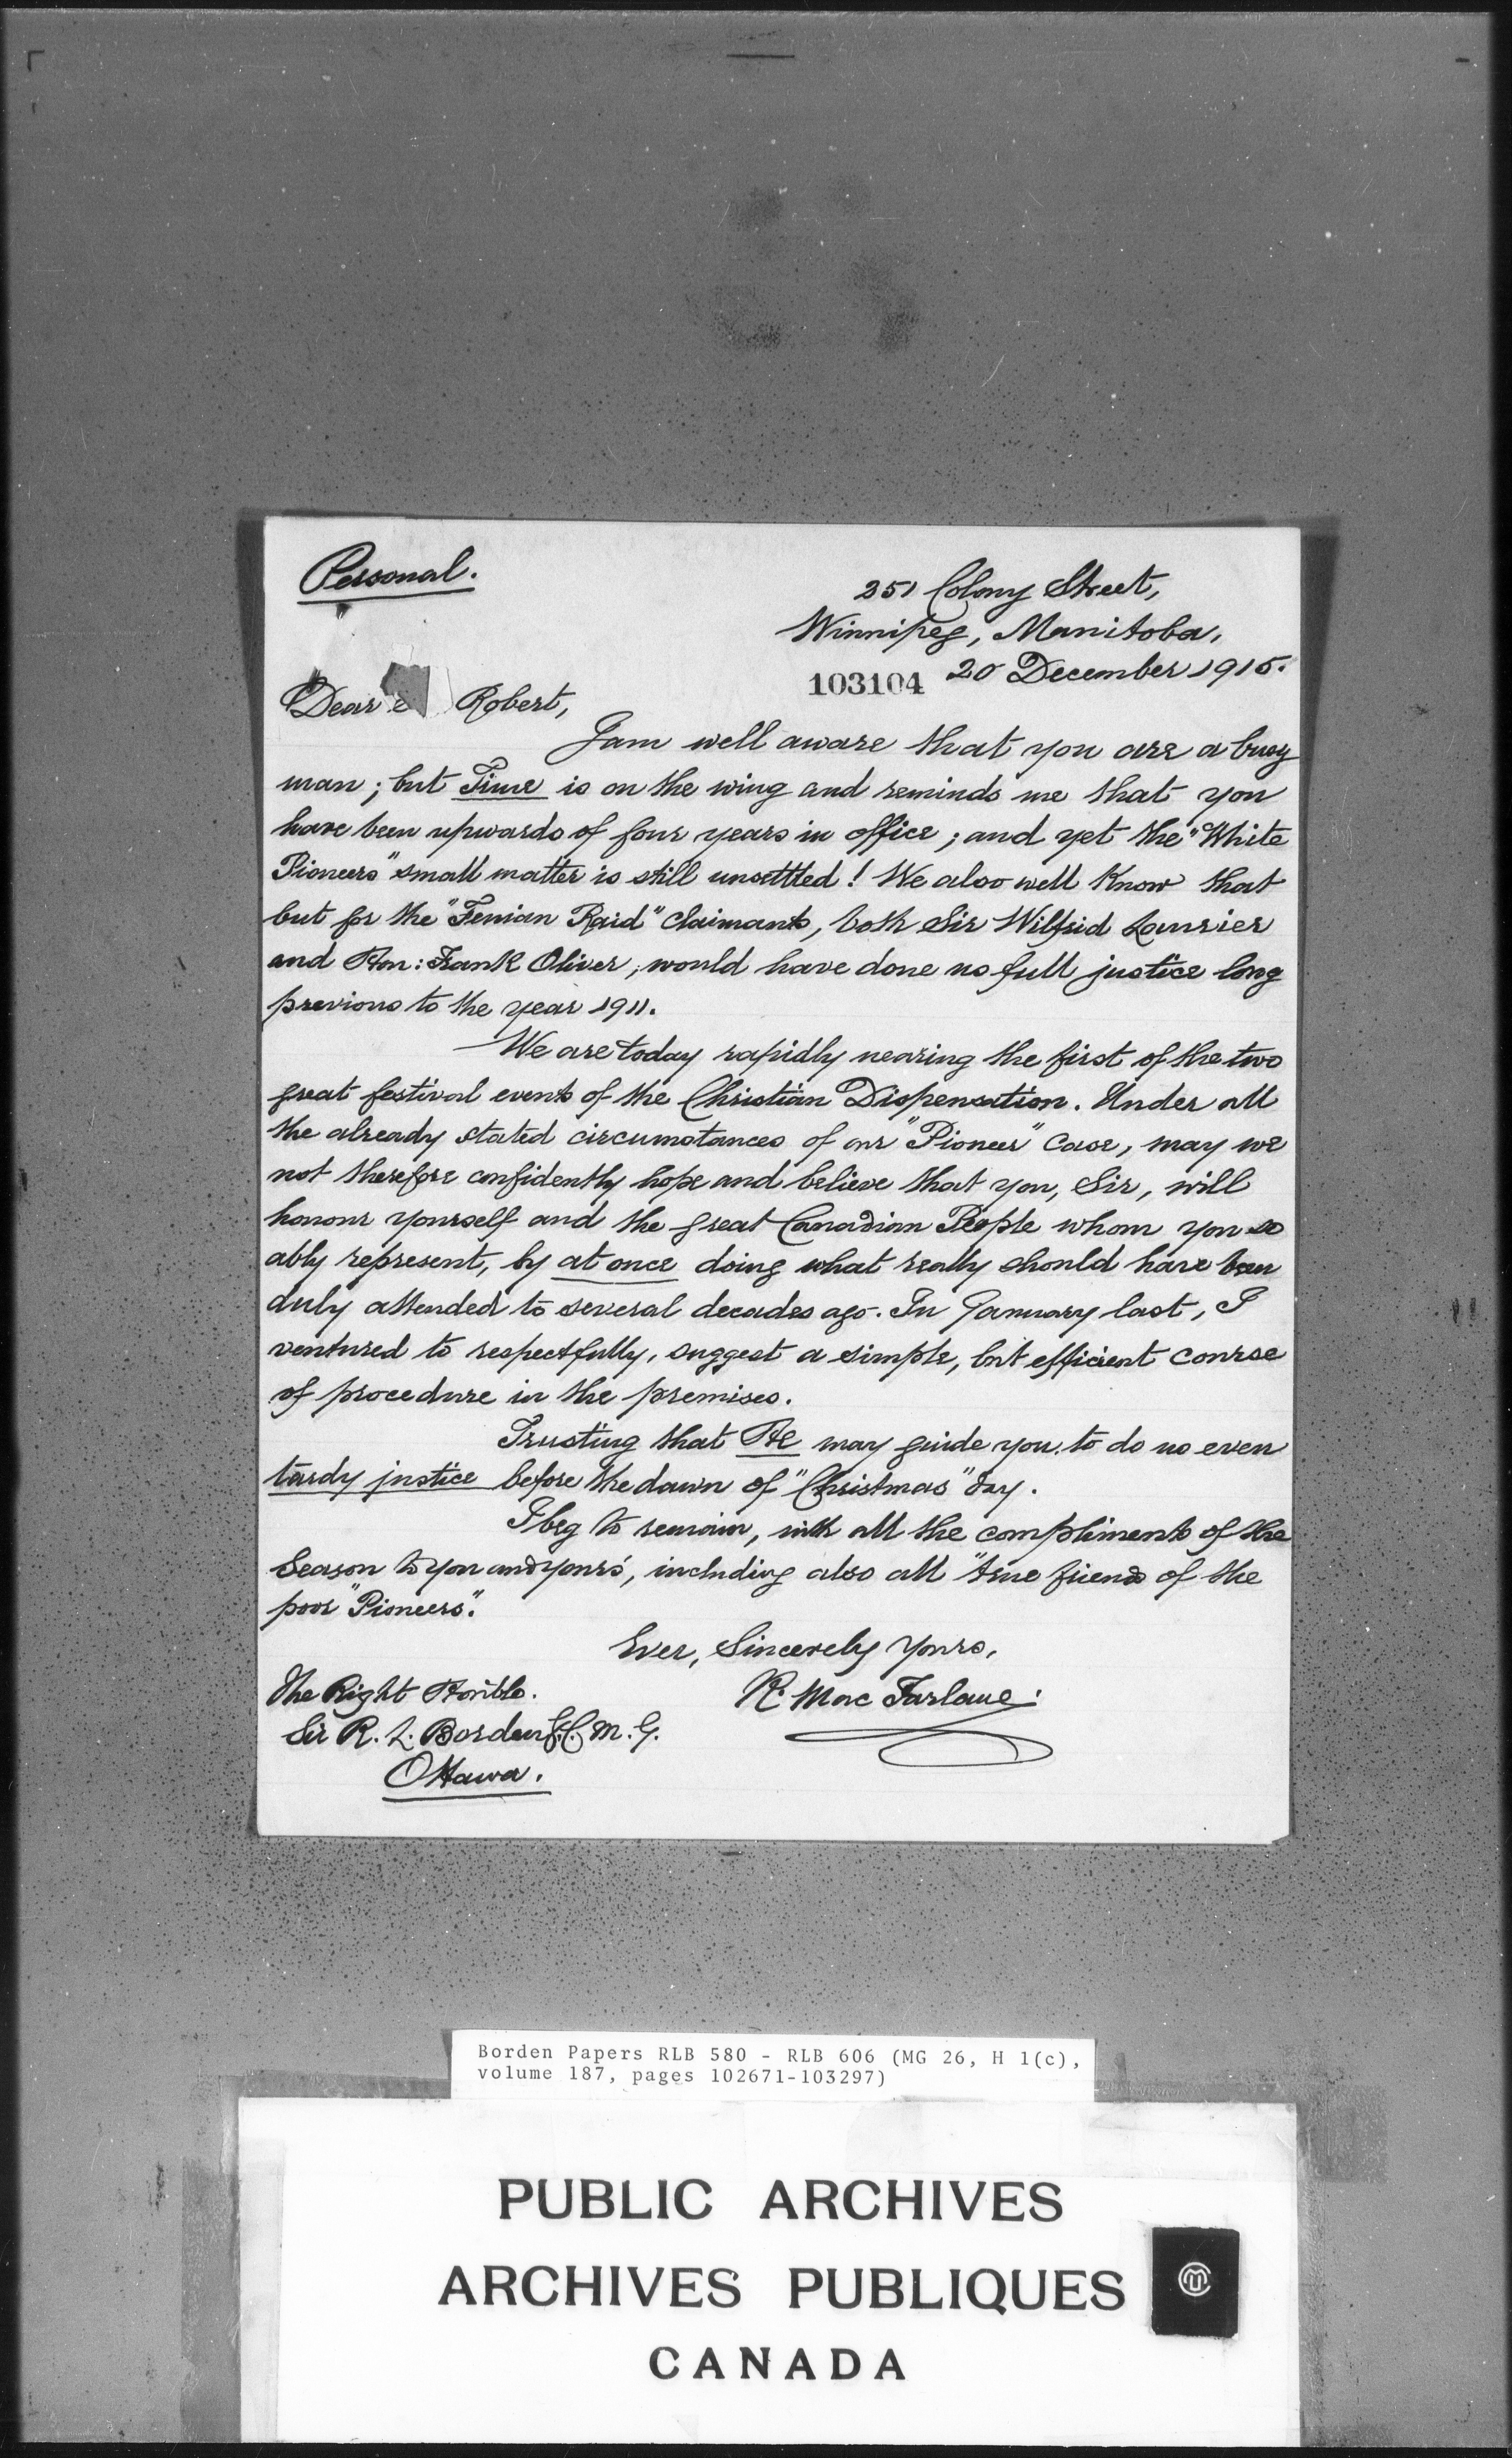 Personal.
251 Colony Street,
Winnipeg, Manitoba,
103104 20 December 1915.
Dear Robert,
I am well aware that you are a busy
man; but Time is on the wing and reminds me that you
have been upwards of four years in office; and yet the "White
Pioneers" small matter is still unsettled! We also well Know that
but for the "Fenian Raid" Claimants, both Sir Wilfrid Laurier
and Hon: Frank Oliver, would have done us full justice long
previous to the year 1911.
We are today rapidly nearing the first of the two
great festival events of the Christian Dispensation. Under all
the already stated circumstances of our "Pioneer" Case, may we
not therefore confidently hope and believe that you, Sir, will
honour yourself and the great Canadian People whom you so
ably represent, by at once doing what really should have been
duly attended to several decades ago. In January last, I
ventured to respectfully, suggest a simple, but efficient course
of procedure in the premises.
Trusting that He may guide you to do us even
tardy justice before the dawn of "Christmas" day.
I beg to remain, with all the compliments of the
Season to you and yours', including also all "true friends of the
poor "Pioneers".
Ever, Sincerely Yours,
The Right Honble. R. MacFarlane.
Sir R. L. Borden G.C.M.G.
Ottawa.
Borden Papers RLB 580 - RLB 606 (MG 26, H 1(c),
volume 187, pages 102671-103297)
PUBLIC ARCHIVES
ARCHIVES PUBLIQUES
CANADA